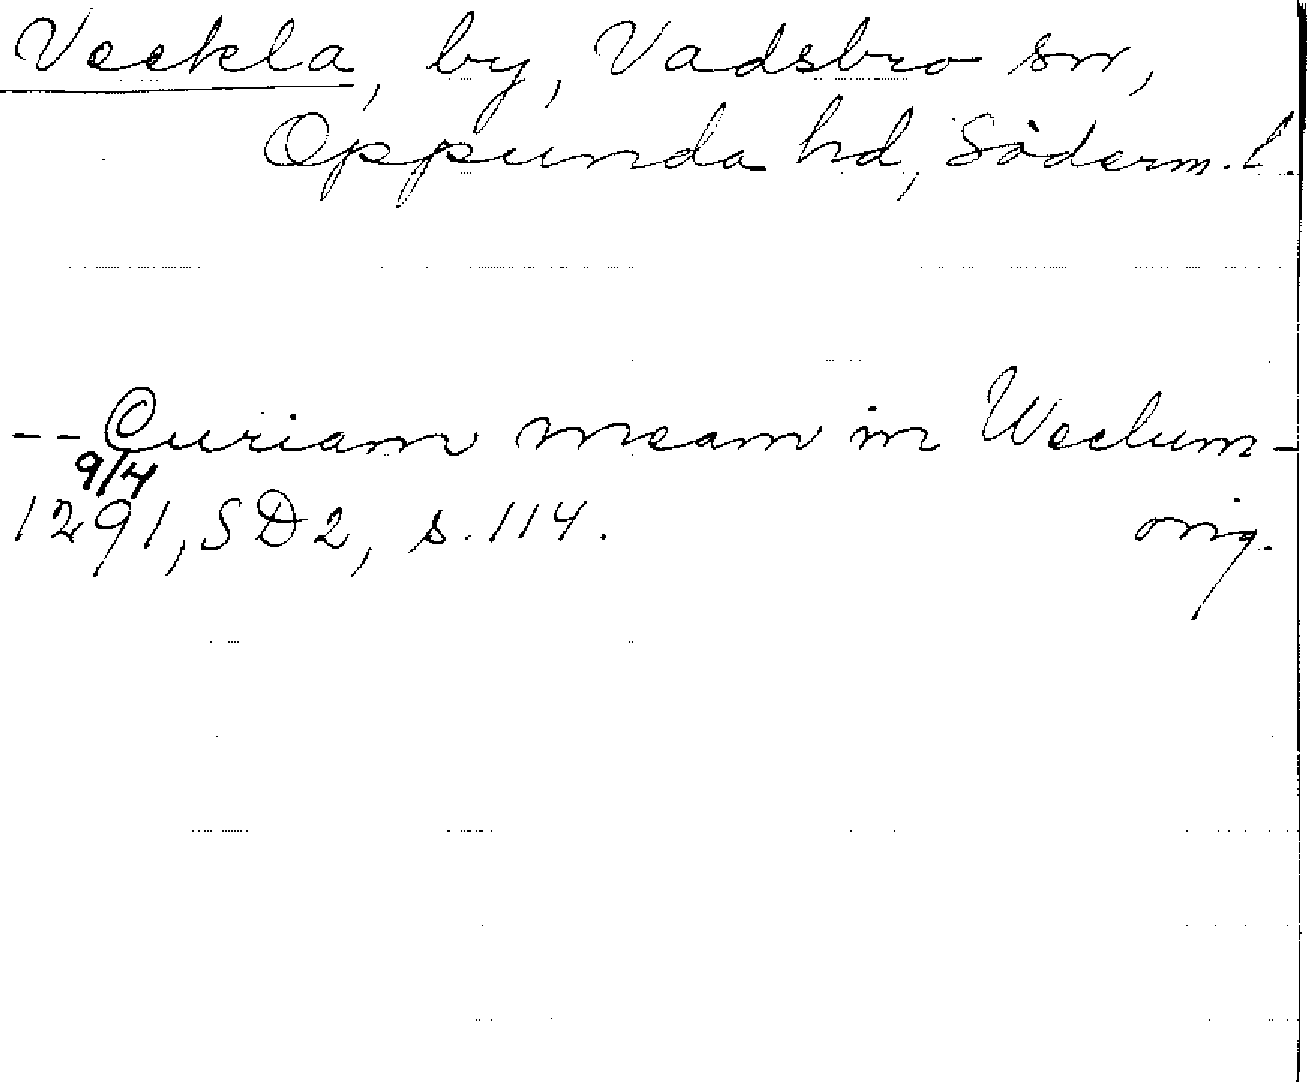 Veckla, by, Vadsbro sn,
Oppunda hd, Söderm. l.
-- Curiam meam in Weclum -
9/4
1291, SD 2, s. 114. orig.